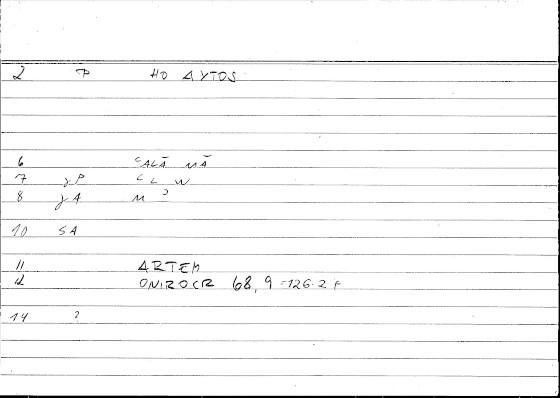 2 P HO AYTOS
6 CALĀ MĀ
7 γP C L W
8 γA M ?
10 SA
11 ARTEM
12 ONIROCR 68, 9 = 126.2 F
14 ?